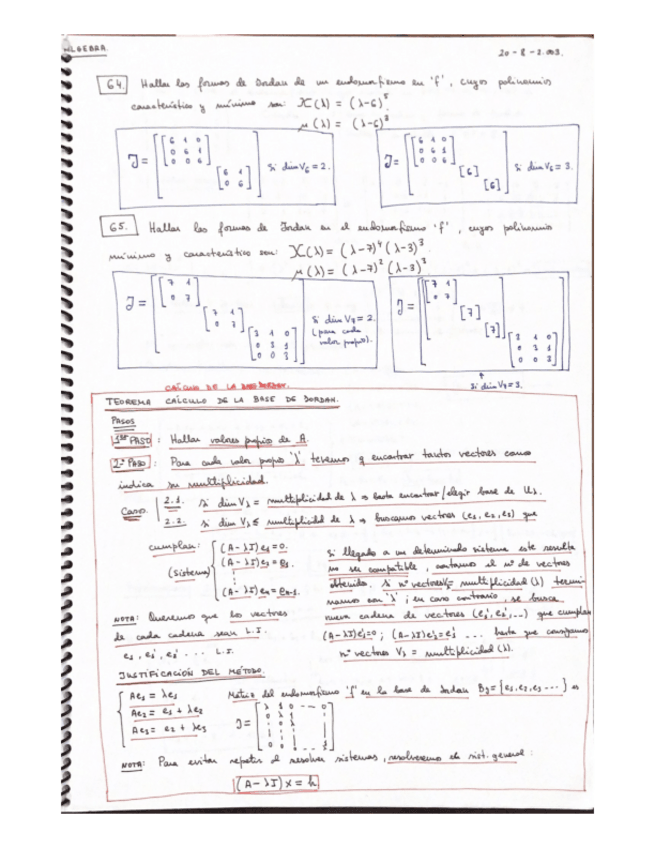 ALGEBRA.
20-8-2.003.
64. Hallar las formas de Jordan de un endomorfismo en 'f', cuyos polinomios
característico y mínimo son: X(λ) = (λ-6)⁵
μ(λ) = (λ-6)³
J = [[6 1 0 / 0 6 1 / 0 0 6] [6 1 / 0 6]] Si dim V₆ = 2.
J = [[6 1 0 / 0 6 1 / 0 0 6] [6] [6]] Si dim V₆ = 3.
65. Hallar las formas de Jordan en el endomorfismo 'f', cuyos polinomios
mínimo y característico son: X(λ) = (λ-7)⁴ (λ-3)³
μ(λ) = (λ-7)² (λ-3)³
J = [[7 1 / 0 7] [7 1 / 0 7] [3 1 0 / 0 3 1 / 0 0 3]] Si dim V₇ = 2 (para cada valor propio).
J = [[7 1 / 0 7] [7] [7] [3 1 0 / 0 3 1 / 0 0 3]]
Si dim V₇ = 3.
CALCULO DE LA JORDAN.
TEOREMA CALCULO DE LA BASE DE JORDAN.
PASOS
1er PASO: Hallar valores propios de A.
2º PASO: Para cada valor propio 'λ' tenemos q encontrar tantos vectores como
indica su multiplicidad.
Casos. 2.1. Si dim Vλ = multiplicidad de λ ⇒ basta encontrar/elegir base de Uλ.
2.2. Si dim Vλ ≤ multiplicidad de λ ⇒ buscamos vectores (e₁, e₂, e₃) que
cumplan: (Sistema)
(A-λI)e₁ = 0.
(A-λI)e₂ = e₁.
(A-λI)en = en-1.
Si llegado a un determinado sistema este resulta
no ser compatible, contamos el nº de vectores
obtenido. Si nº vectores Vλ = multiplicidad (λ) termi-
namos con 'λ'; en caso contrario, se busca
nueva cadena de vectores (e₁', e₂', ...) que cumplan
(A-λI)e₁'=0; (A-λI)e₂'=e₁' ... hasta que consigamos
nº vectores Vλ = multiplicidad (λ).
NOTA: Queremos que los vectores
de cada cadena sean L.I.
e₁, e₁', e₁'' ... L.I.
JUSTIFICACIÓN DEL MÉTODO.
Ae₁ = λe₁
Ae₂ = e₁ + λe₂
Ae₃ = e₂ + λe₃
Matriz del endomorfismo 'f' en la base de Jordan BJ = {e₁, e₂, e₃ ...} es
J =
NOTA: Para evitar repetir al resolver sistemas, resolveremos el sist. general:
(A-λI)x = h